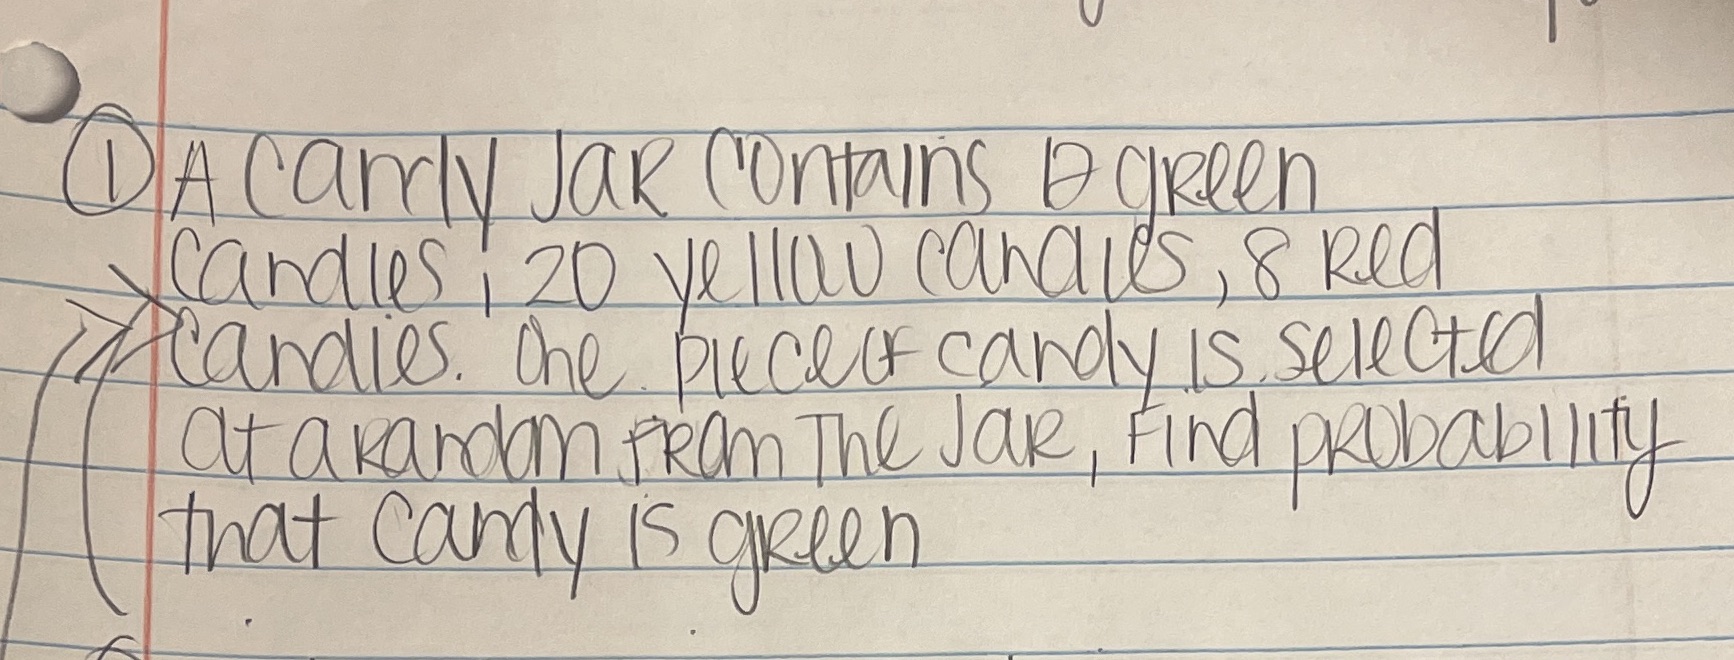 ① A Candy Jar Contains 12 green
Candies, 20 yellow candies, 8 Red
Candies. One piece of candy is selected
at a random from The Jar, Find probability
that candy is green